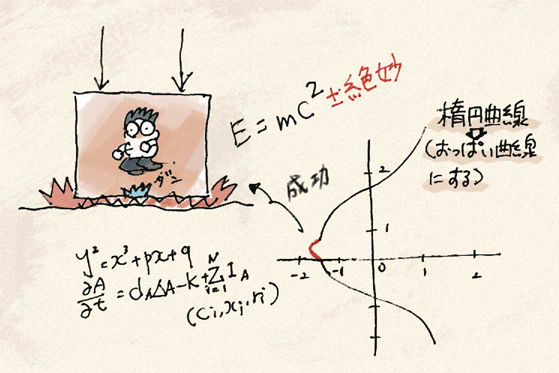 E=mc²±絶妙
楕円曲線
(おっぱい曲線
にする)
ダン
成功
y²=x³+px+q
∂A/∂t=d_AΔA-k+Σ_{i=1}^{N}I_A
(Ci,xj,ri)
2
1
-2 -1 0 1 2